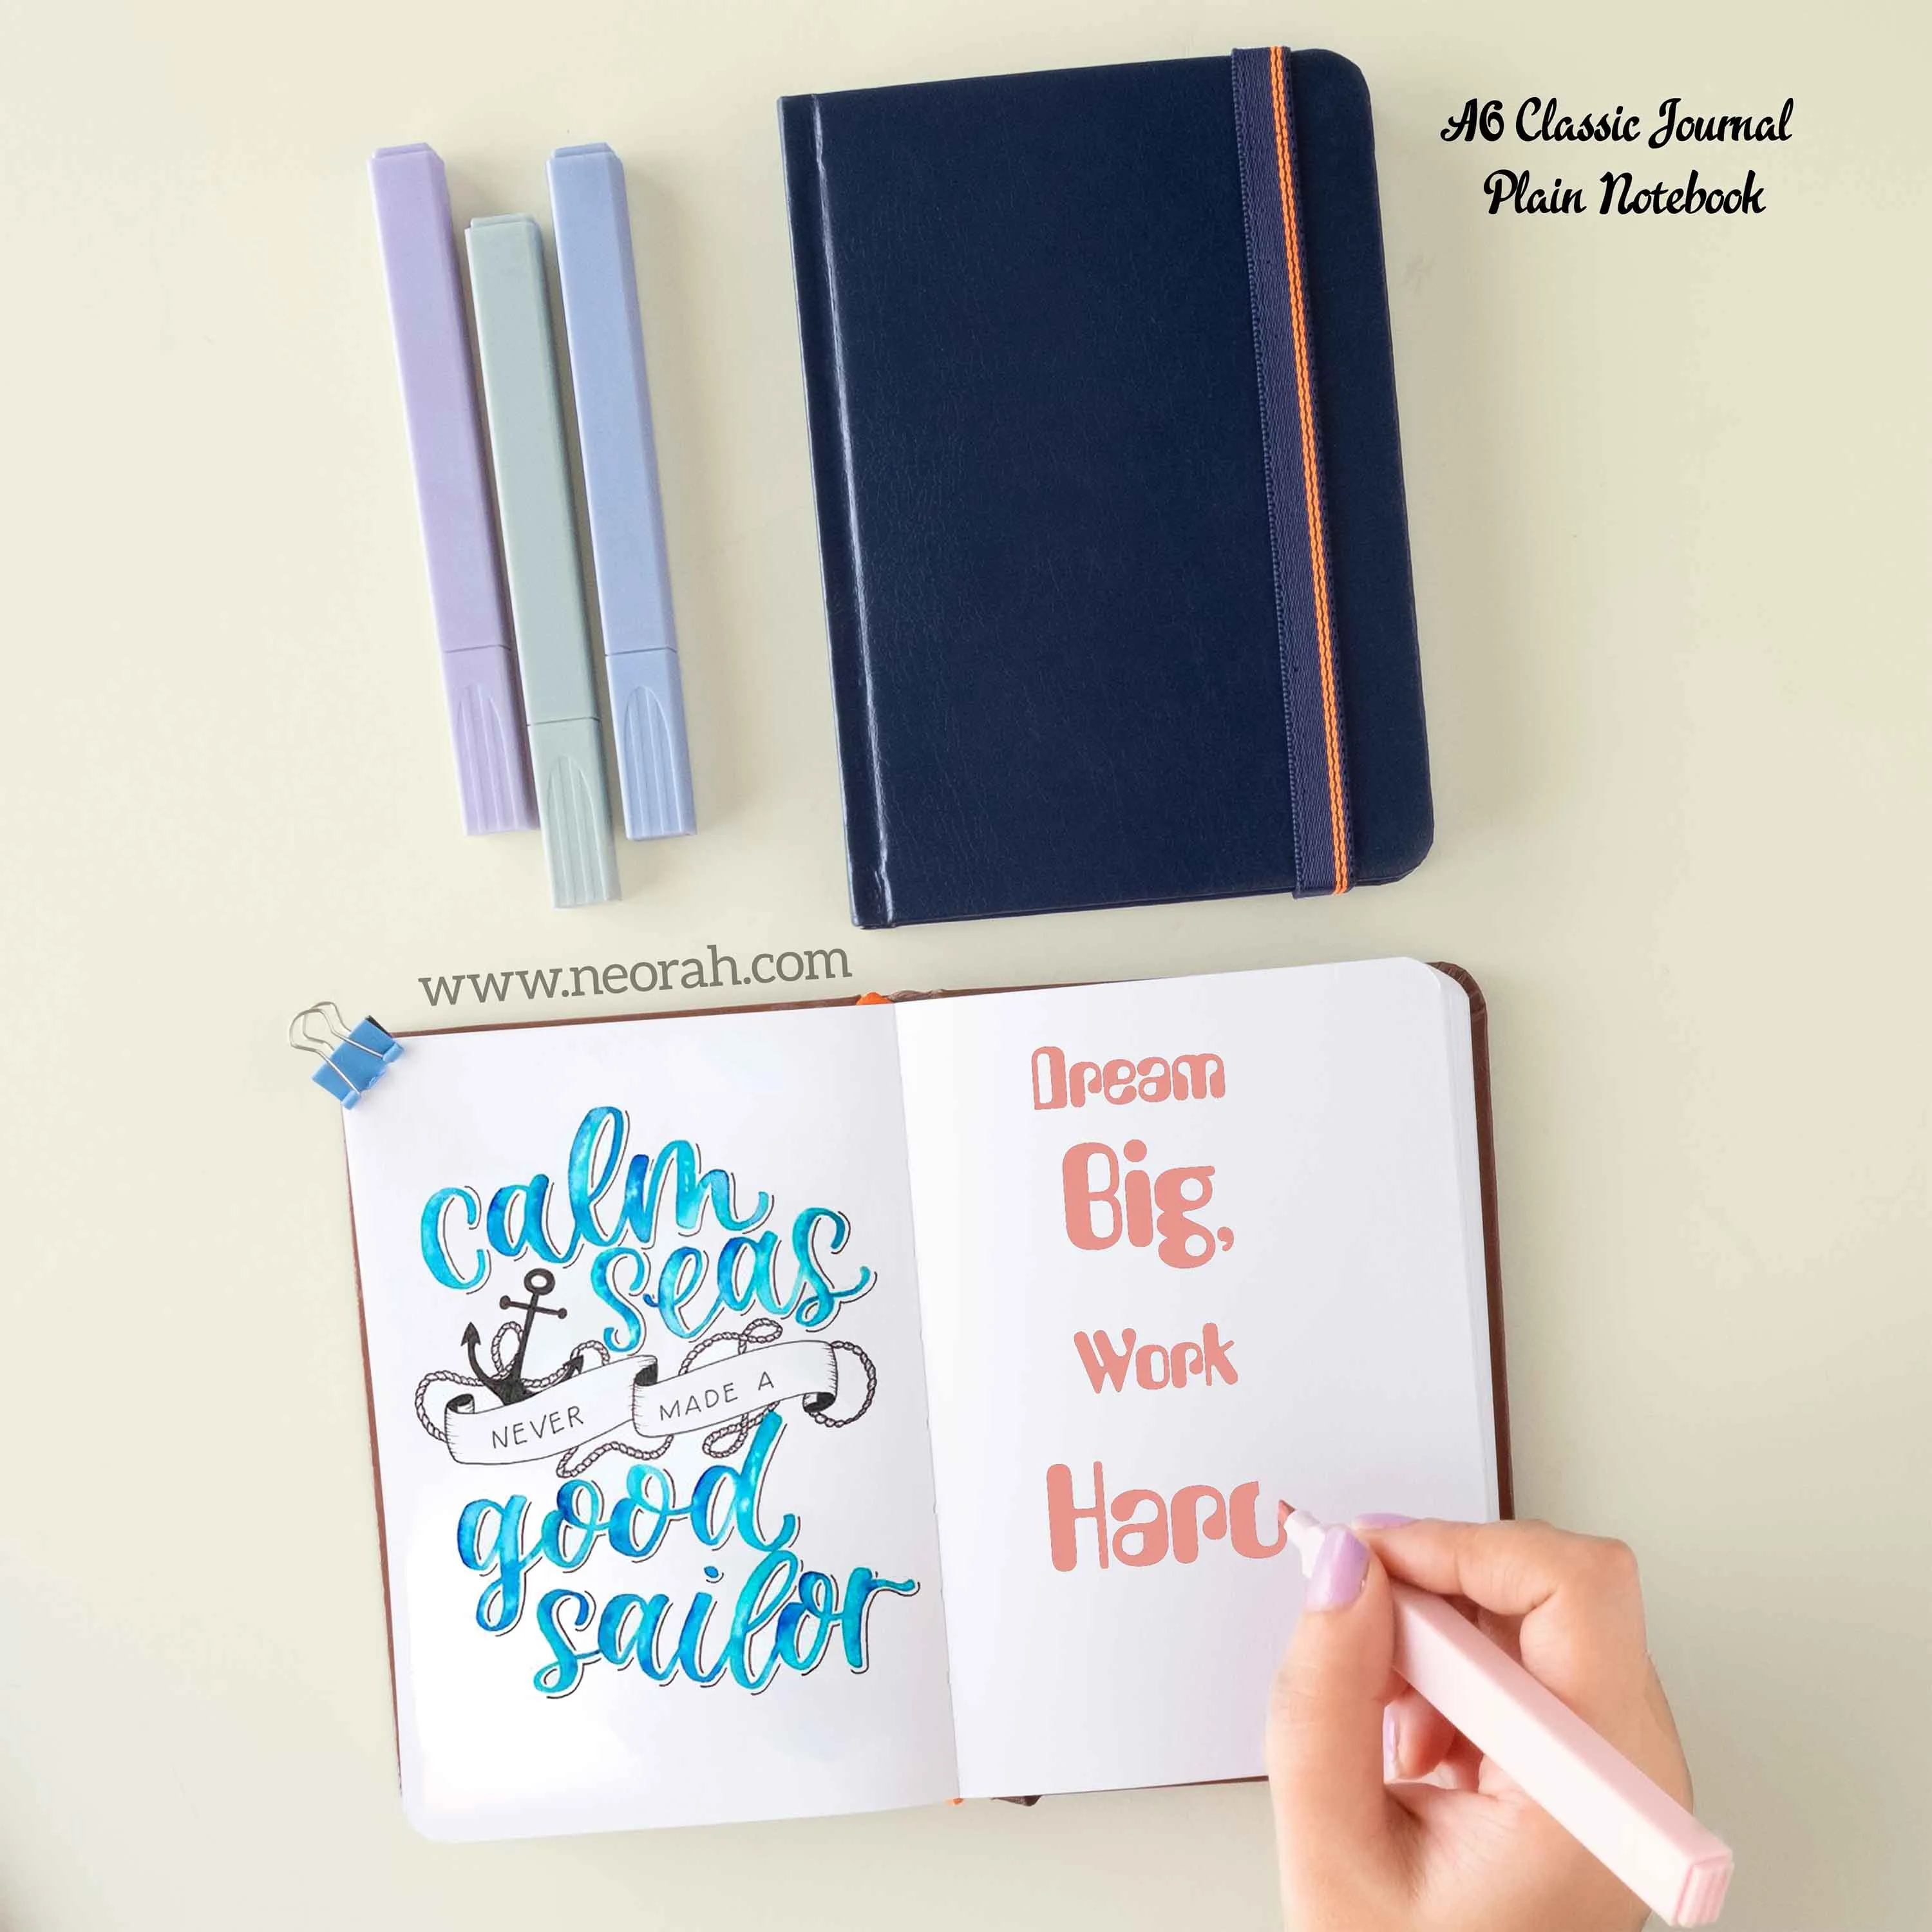 A6 Classic Journal
Plain Notebook
www.neorah.com
calm
seas
NEVER MADE A
good
sailor
Dream
Big,
Work
Harc